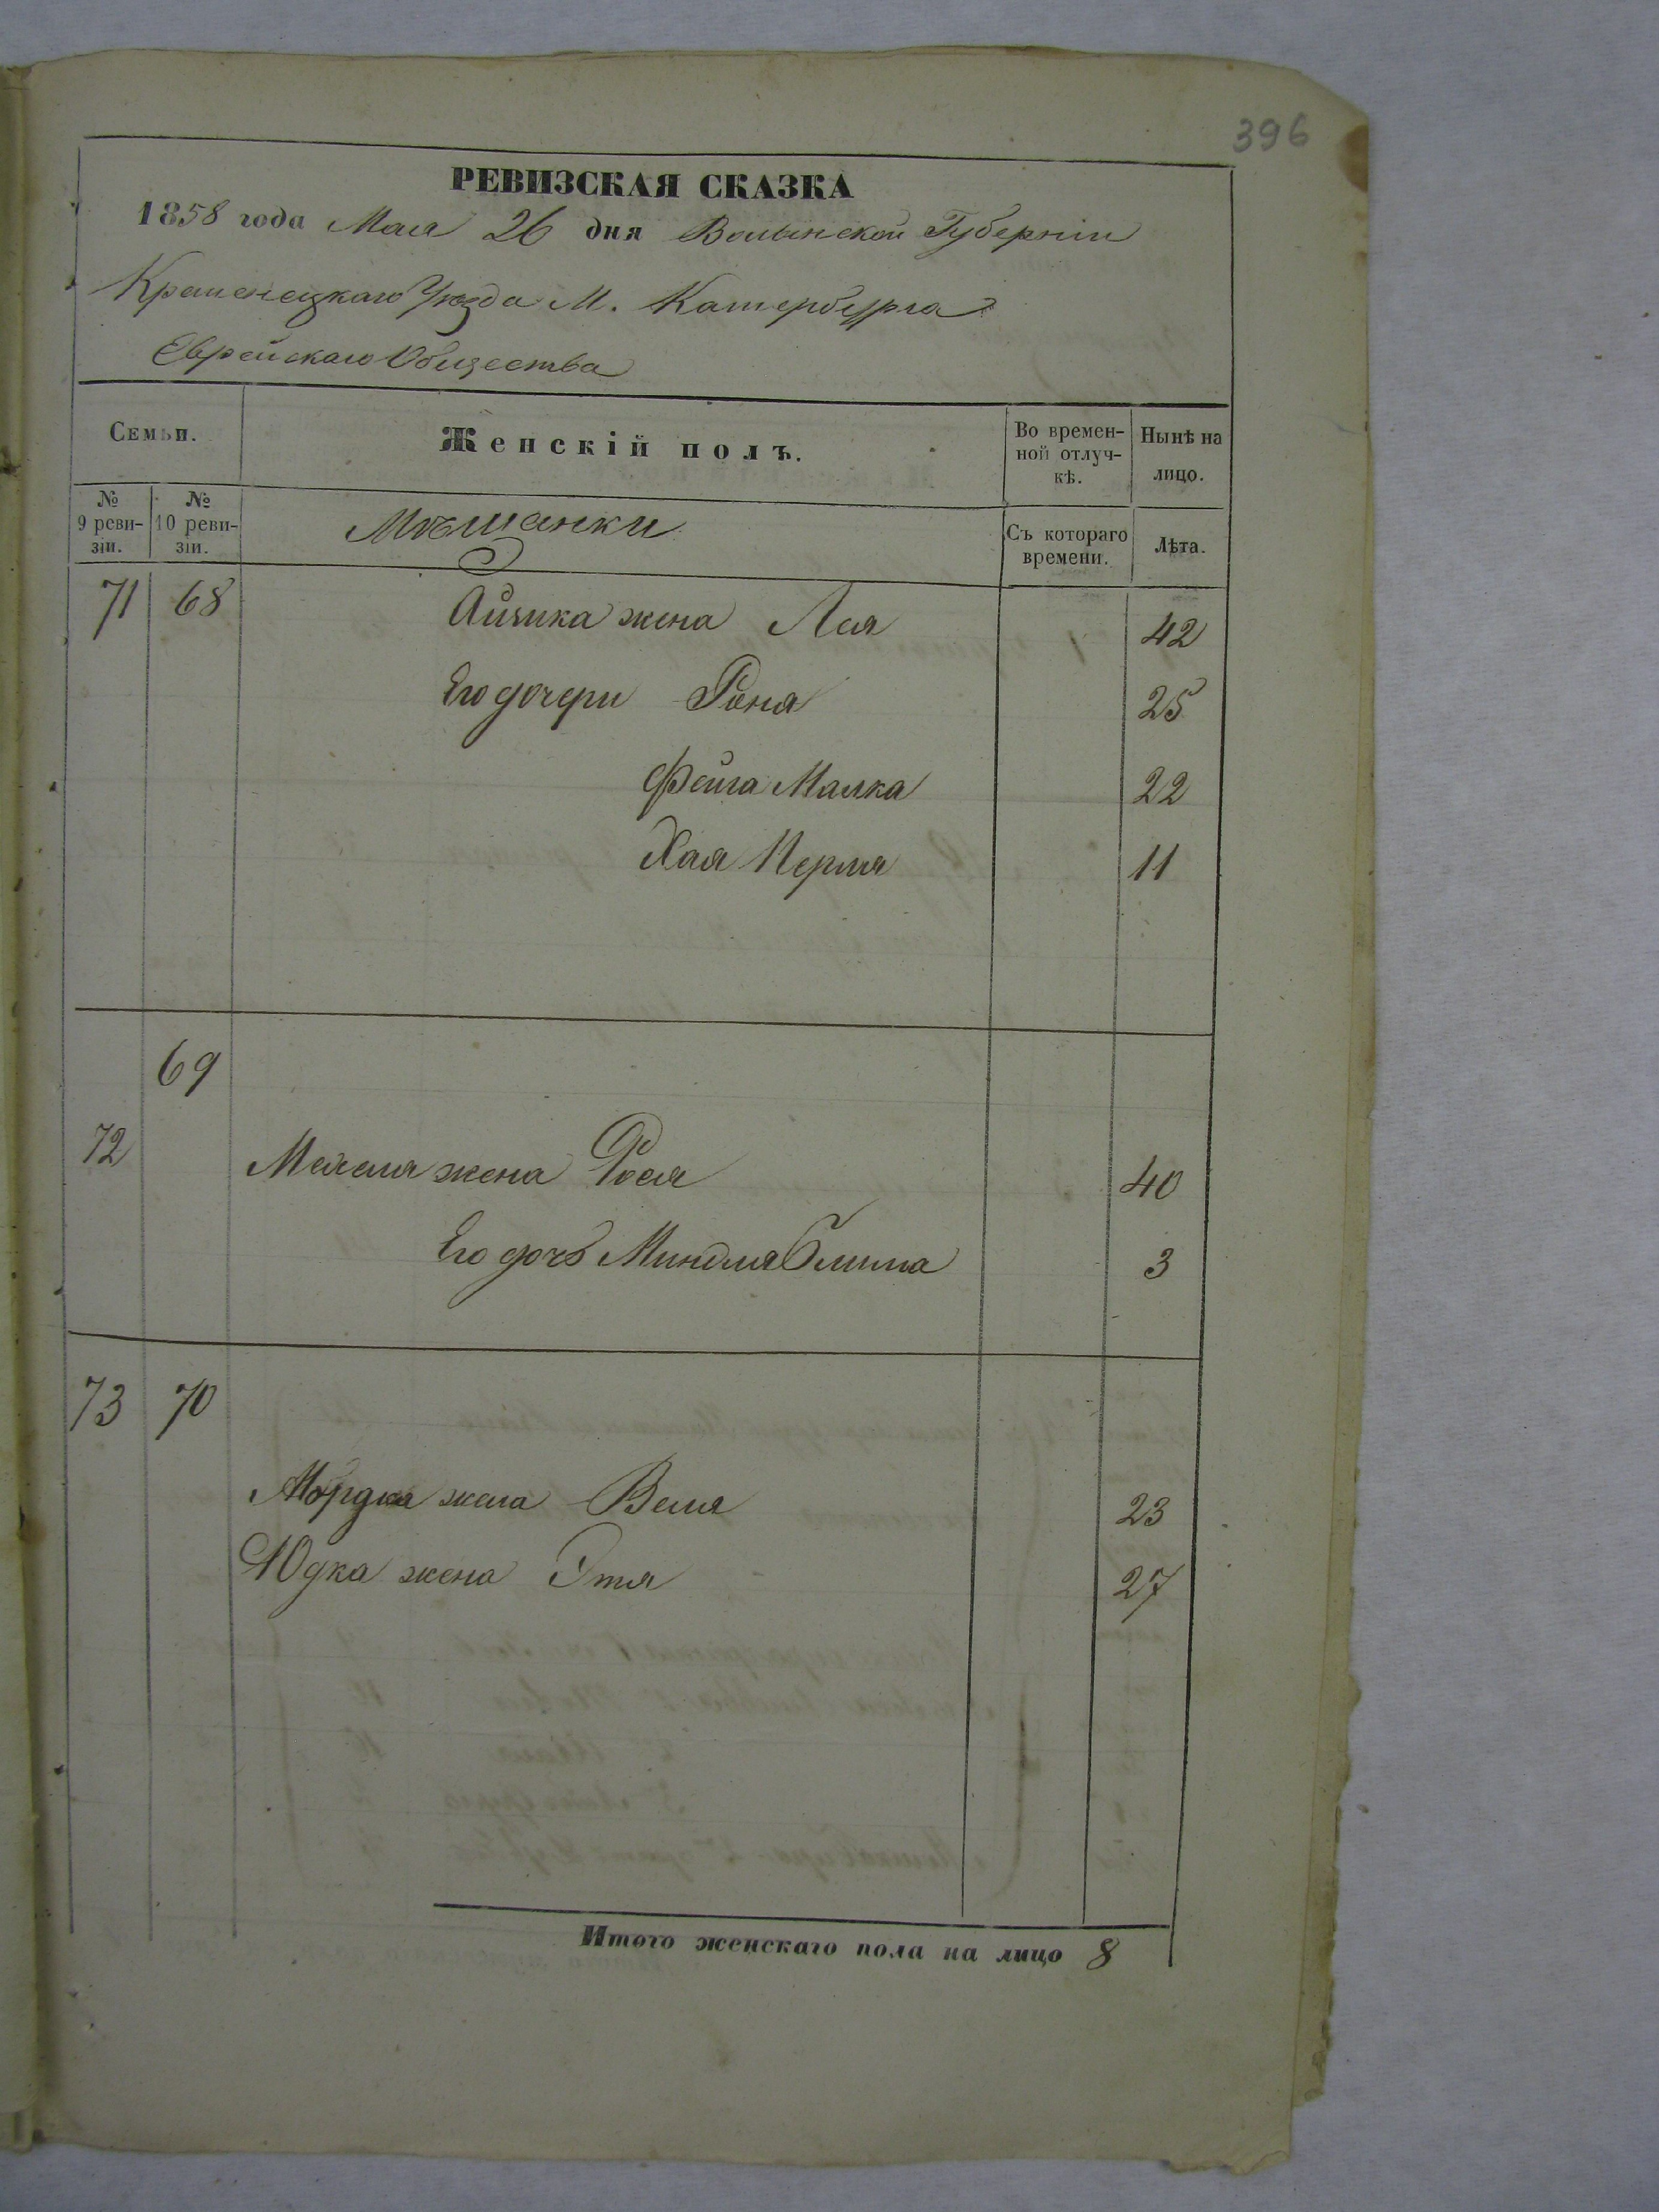 396
РЕВИЗСКАЯ СКАЗКА
1858 года Мая 26 дня Волынской Губерніи
Кременецкаго Уѣзда М. Катербурга
Еврейскаго Общества
Семьи.
Женскій полъ.
Во времен-
ной отлуч-
кѣ.
Нынѣ на
лицо.
№
9 реви-
зіи.
№
10 реви-
зіи.
Мѣщанки
Съ котораго
времени.
Лѣта.
71 68 Айзика жена Лея 42
Его дочери Роня 25
Фейга Малка 22
Хая Перля 11
69
72 Мехеля жена Рося 40
Его дочь Миндля Блима 3
73 70
Мордка жена Веля 23
Юдка жена Этя 27
Итого женскаго пола на лицо 8